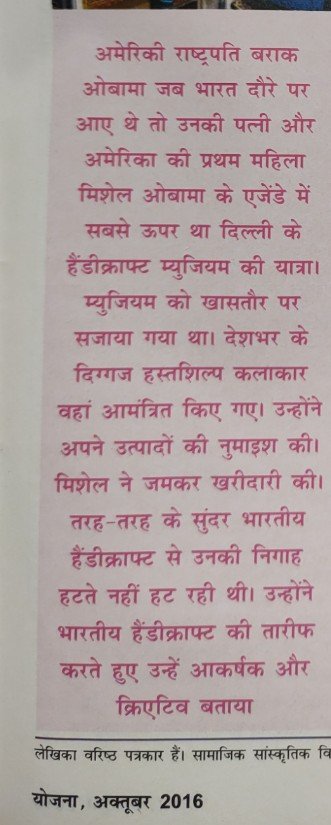 अमेरिकी राष्ट्रपति बराक
ओबामा जब भारत दौरे पर
आए थे तो उनकी पत्नी और
अमेरिका की प्रथम महिला
मिशेल ओबामा के एजेंडे में
सबसे ऊपर था दिल्ली के
हैंडीक्राफ्ट म्युजियम की यात्रा।
म्युजियम को खासतौर पर
सजाया गया था। देशभर के
दिग्गज हस्तशिल्प कलाकार
वहां आमंत्रित किए गए। उन्होंने
अपने उत्पादों की नुमाइश की।
मिशेल ने जमकर खरीदारी की।
तरह-तरह के सुंदर भारतीय
हैंडीक्राफ्ट से उनकी निगाह
हटते नहीं हट रही थी। उन्होंने
भारतीय हैंडीक्राफ्ट की तारीफ
करते हुए उन्हें आकर्षक और
क्रिएटिव बताया
लेखिका वरिष्ठ पत्रकार हैं। सामाजिक सांस्कृतिक
योजना, अक्तूबर 2016